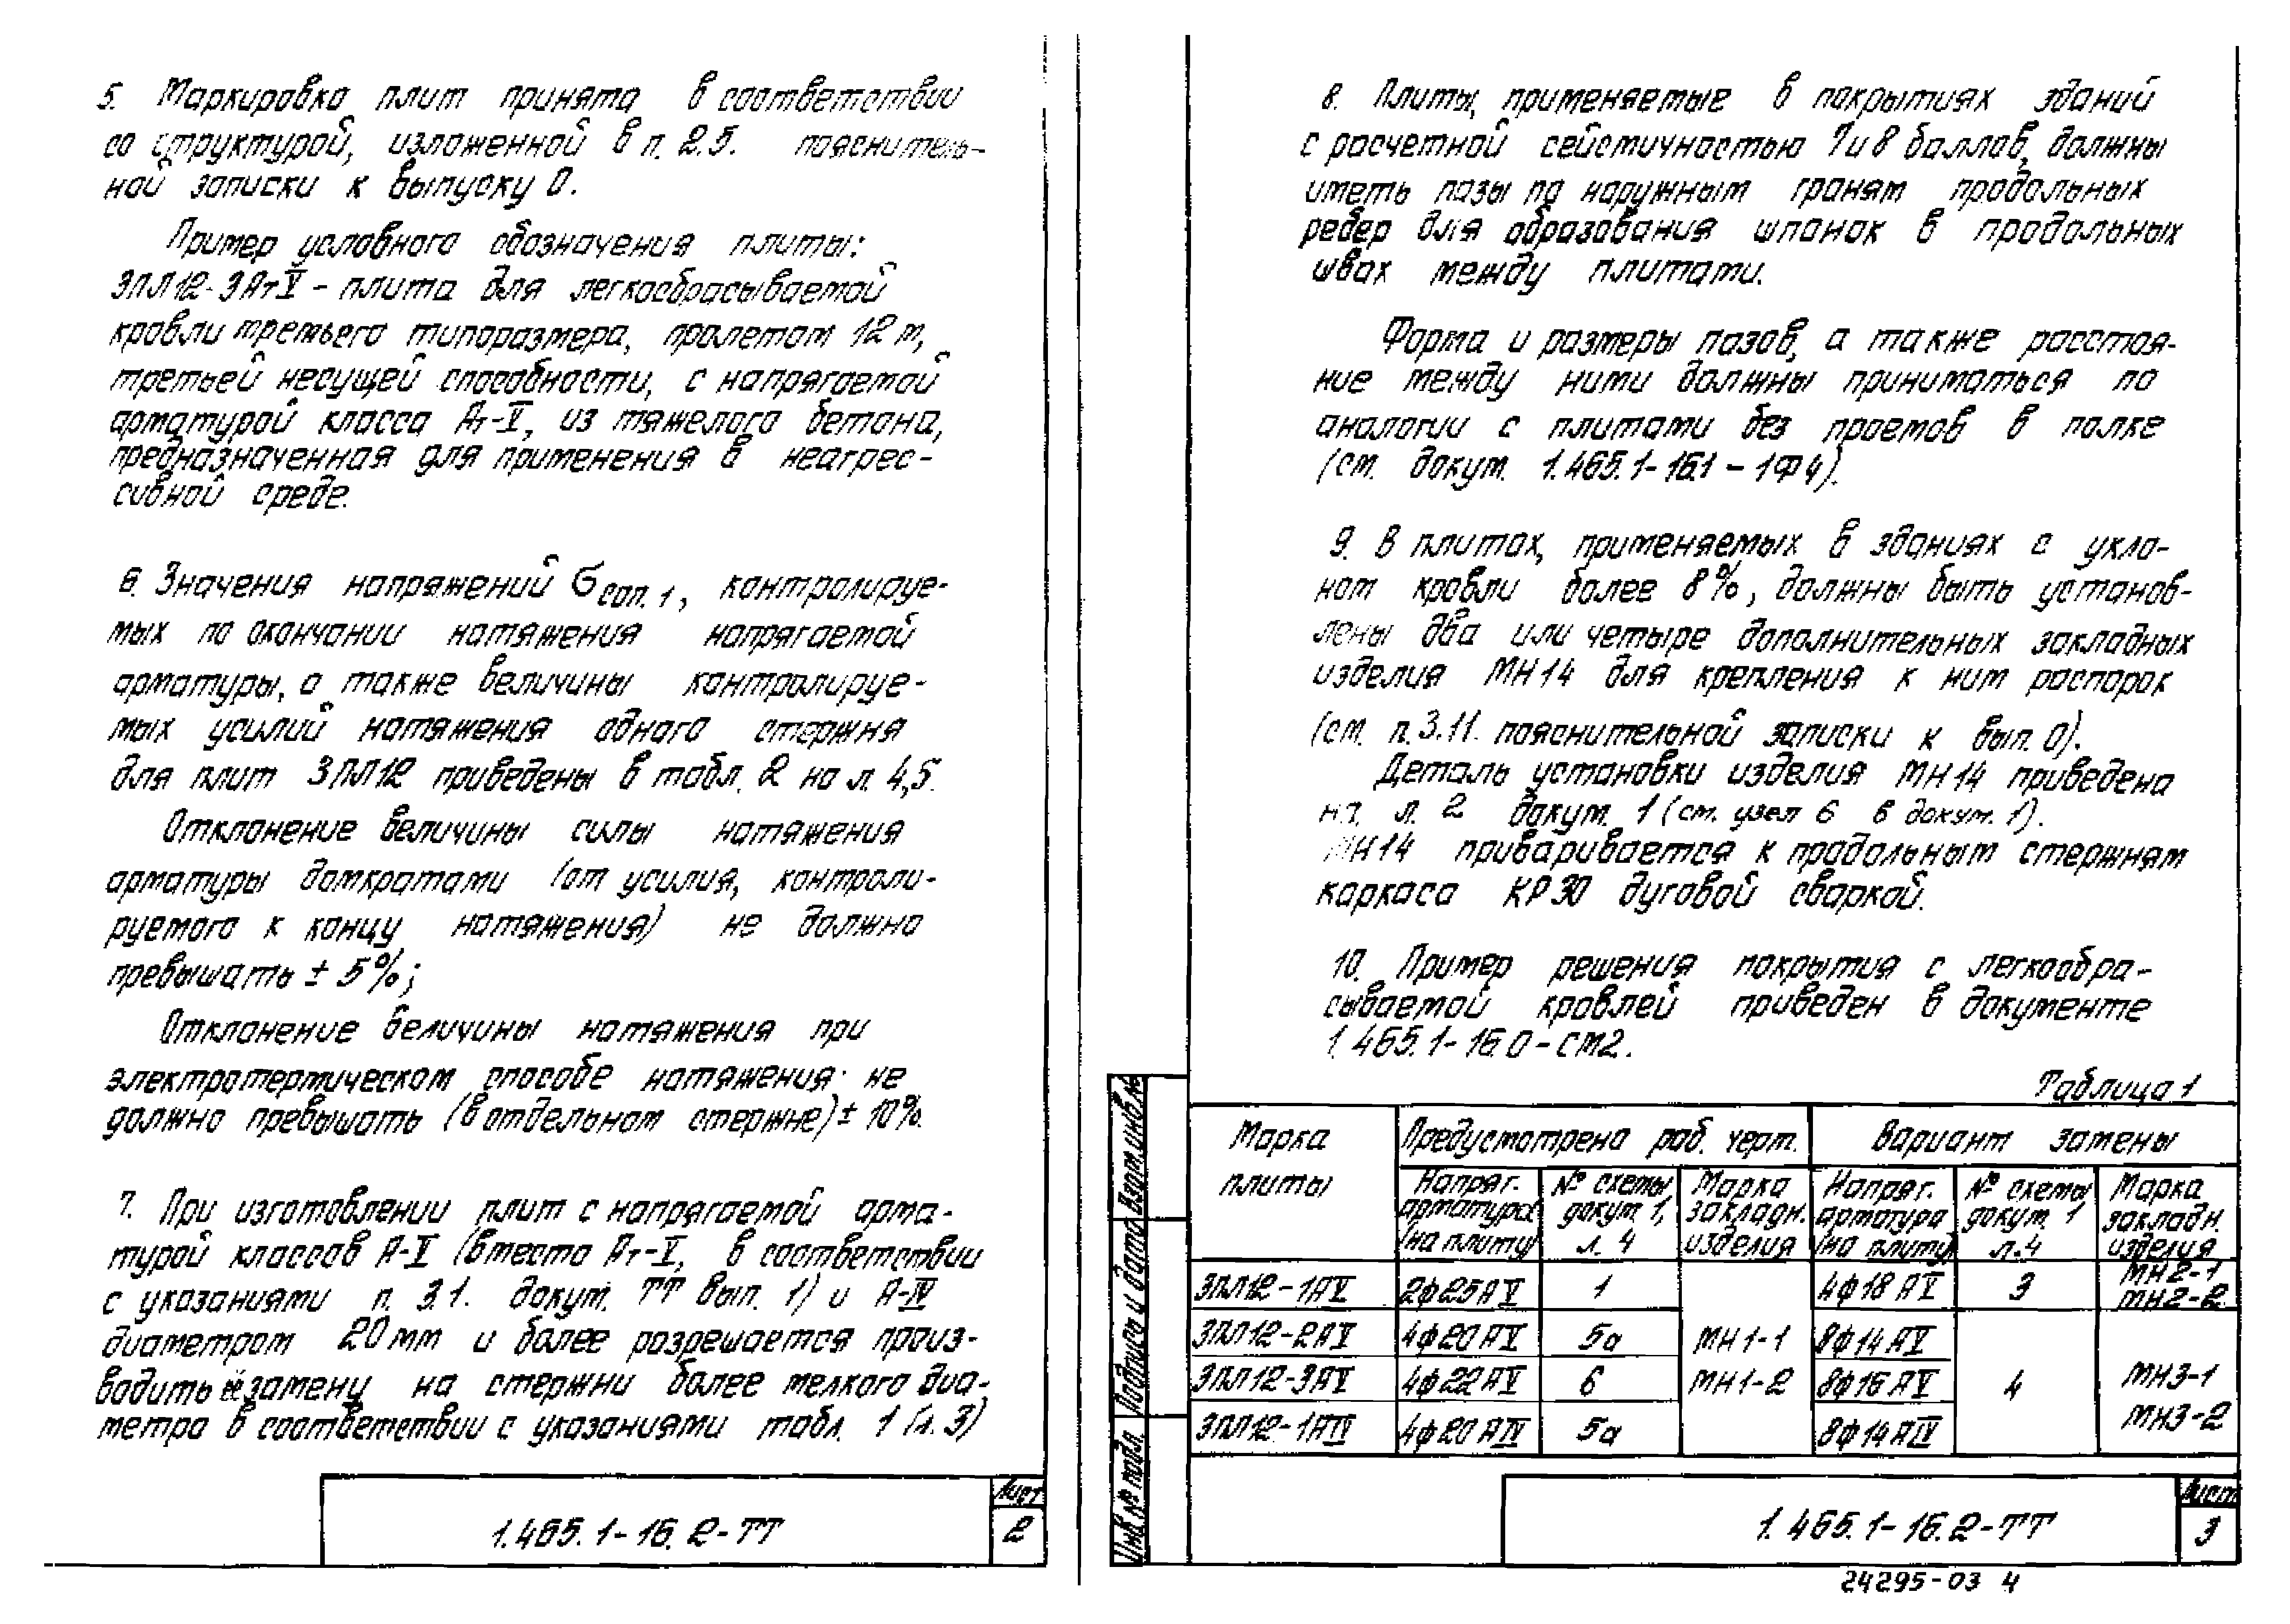 5. Маркировка плит принята в соответствии
со структурой, изложенной в п. 2.5. пояснитель-
ной записки к выпуску 0.
Пример условного обозначения плиты:
3ПЛ12-3АтV – плита для легкосбрасываемой
кровли третьего типоразмера, пролетом 12 м,
третьей несущей способности, с напрягаемой
арматурой класса Ат-V, из тяжелого бетона,
предназначенная для применения в неагрес-
сивной среде.
6. Значения напряжений σсоп.1, контролируе-
мых по окончании натяжения напрягаемой
арматуры, а также величины контролируе-
мых усилий натяжения одного стержня
для плит 3ПЛ12 приведены в табл. 2 на л. 4,5.
Отклонение величины силы натяжения
арматуры домкратами (от усилия, контроли-
руемого к концу натяжения) не должно
превышать ± 5%;
Отклонение величины натяжения при
электротермическом способе натяжения не
должно превышать (в отдельном стержне) ± 10%.
7. При изготовлении плит с напрягаемой арма-
турой классов А-V (вместо Ат-V, в соответствии
с указаниями п. 3.1. докум. ТТ вып. 1) и А-IV
диаметром 20 мм и более разрешается произ-
водить её замену на стержни более мелкого диа-
метра в соответствии с указаниями табл. 1 (л. 3)
1.465.1-16.2-ТТ
Лист
2
8. Плиты, применяемые в покрытиях зданий
с расчетной сейсмичностью 7 и 8 баллов, должны
иметь пазы по наружным граням продольных
ребер для образования шпонок в продольных
швах между плитами.
Форма и размеры пазов, а также расстоя-
ние между ними должны приниматься по
аналогии с плитами без проемов в полке
(см. докум. 1.465.1-16.1 – 1Ф4).
9. В плитах, применяемых в зданиях с укло-
ном кровли более 8%, должны быть установ-
лены два или четыре дополнительных закладных
изделия МН14 для крепления к ним распорок
(см. п. 3.11. пояснительной записки к вып. 0).
Деталь установки изделия МН14 приведена
на л. 2 докум. 1 (см. узел 6 в докум. 1).
МН14 приваривается к продольным стержням
каркаса КР30 дуговой сваркой.
10. Пример решения покрытия с легкосбра-
сываемой кровлей приведен в документе
1.465.1-16.0-СМ2.
Таблица 1
Марка плиты | Предусмотрена раб. черт. | Вариант замены
Напряг. арматура (на плиту) | № схемы докум. 1, л. 4 | Марка закладн. изделия | Напряг. арматура (на плиту) | № схемы докум. 1 л. 4 | Марка закладн. изделия
3ПЛ12-1АV | 2ф25АV | 1 | МН1-1 МН1-2 | 4ф18АV | 3 | МН2-1 МН2-2
3ПЛ12-2АV | 4ф20АV | 5а | 8ф14АV | 4 | МН3-1 МН3-2
3ПЛ12-3АV | 4ф22АV | 6 | 8ф16АV
3ПЛ12-1АIV | 4ф20АIV | 5а | 8ф14АIV
Инв. № подл.
Подпись и дата
Взам. инв. №
1.465.1-16.2-ТТ
Лист
3
24295-03 4